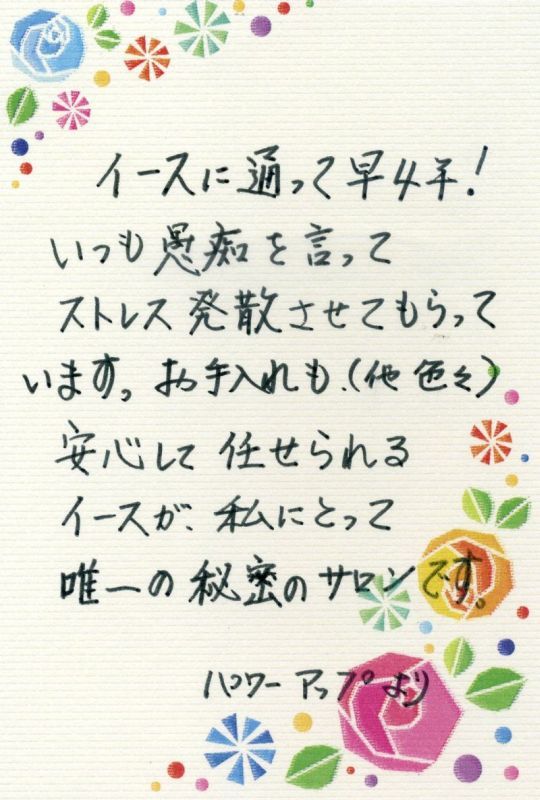 イースに通って早4年!
いつも愚痴を言って
ストレス発散させてもらって
います。お手入れも、(他色々)
安心して任せられる
イースが、私にとって
唯一の秘密のサロンです。
パワーアップより